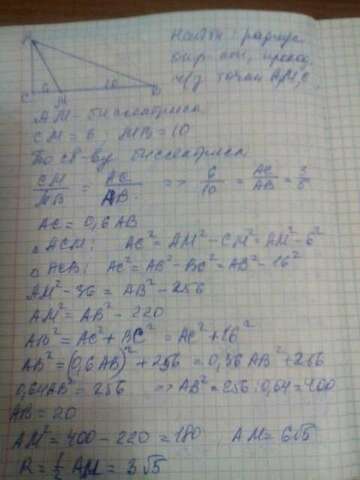 Найти: радиус
окр-сти, проход.
ч/з точки A, M, C.
A
C 6 M 10 B
AM - биссектриса
CM = 6, MB = 10
По св-ву биссектрисы
CM/MB = AC/AB => 6/10 = AC/AB = 3/5
AC = 0,6 AB
△ACM: AC² = AM² - CM² = AM² - 6²
△ACB: AC² = AB² - BC² = AB² - 16²
AM² - 36 = AB² - 256
AM² = AB² - 220
AB² = AC² + BC² = AC² + 16²
AB² = (0,6 AB)² + 256 = 0,36 AB² + 256
0,64 AB² = 256 => AB² = 256 : 0,64 = 400
AB = 20
AM² = 400 - 220 = 180, AM = 6√5
R = 1/2 AM = 3√5